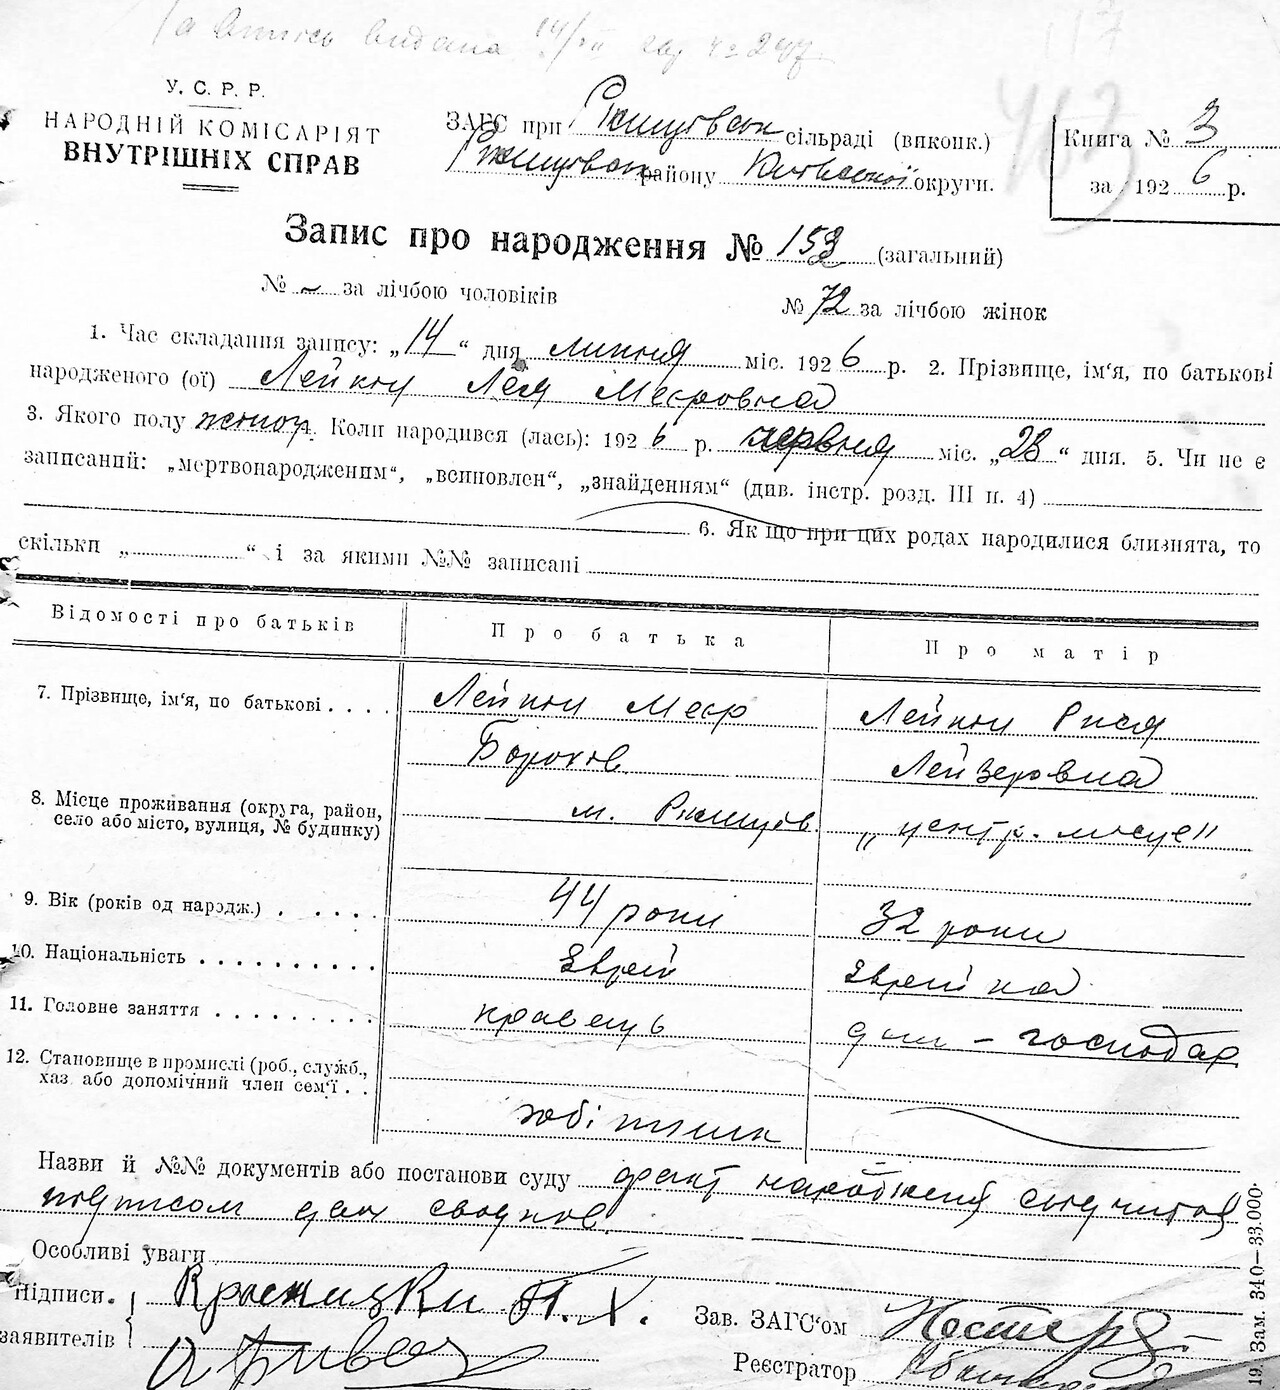 У. С. Р. Р.
НАРОДНІЙ КОМІСАРІЯТ
ВНУТРІШНІХ СПРАВ
ЗАГС при Ржищівськ сільраді (виконк.)
Ржищівськ району Київської округи.
Книга № 3
за 1926 р.
Запис про народження № 152 (загальний)
№ – за лічбою чоловіків № 72 за лічбою жінок
1. Час складання запису: „14“ дня липня міс. 1926 р. 2. Прізвище, ім'я, по батькові
народженого (ої) Лейкин Лея Меєровна
3. Якого полу жіноч. Коли народився (лась): 1926 р. червня міс. „28“ дня. 5. Чи не є
записаний: „мертвонародженим“, „всиновлен“, „знайденням“ (див. інстр. розд. III п. 4)
6. Як що при цих родах народилися близнята, то
скільки „ “ і за якими №№ записані
Відомості про батьків Про батька Про матір
7. Прізвище, ім'я, по батькові . . . . Лейкин Меєр Лейкин Рися
Борохов Лейзеровна
8. Місце проживання (округа, район,
село або місто, вулиця, № будинку) м. Ржищів. „центр. місце"
9. Вік (років од народж.) . . . . . 44 роки 32 роки
10. Національність . . . . . . . . . . Єврей Єврейка
11. Головне заняття . . . . . . . . . кравець дом – господар
12. Становище в промислі (роб., служб.,
хаз. або допомічний член сем'ї . .
робітник
Назви й №№ документів або постанови суду факт народження
подписом двох сводков.
Особливі уваги
Підписи
заявителів
Красницки П. Х.
Зав. ЗАГС'ом
Реєстратор
19. Зам. 340—33.000.